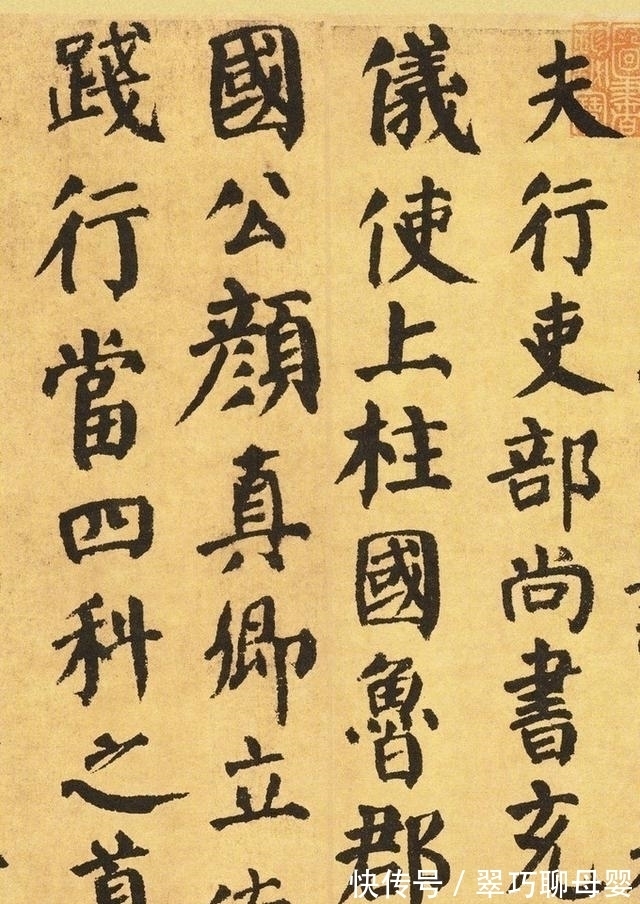 夫行吏部尚書充
儀使上柱國魯郡
國公顏真卿立德
踐行當四科之首
快传号/翠巧聊母婴